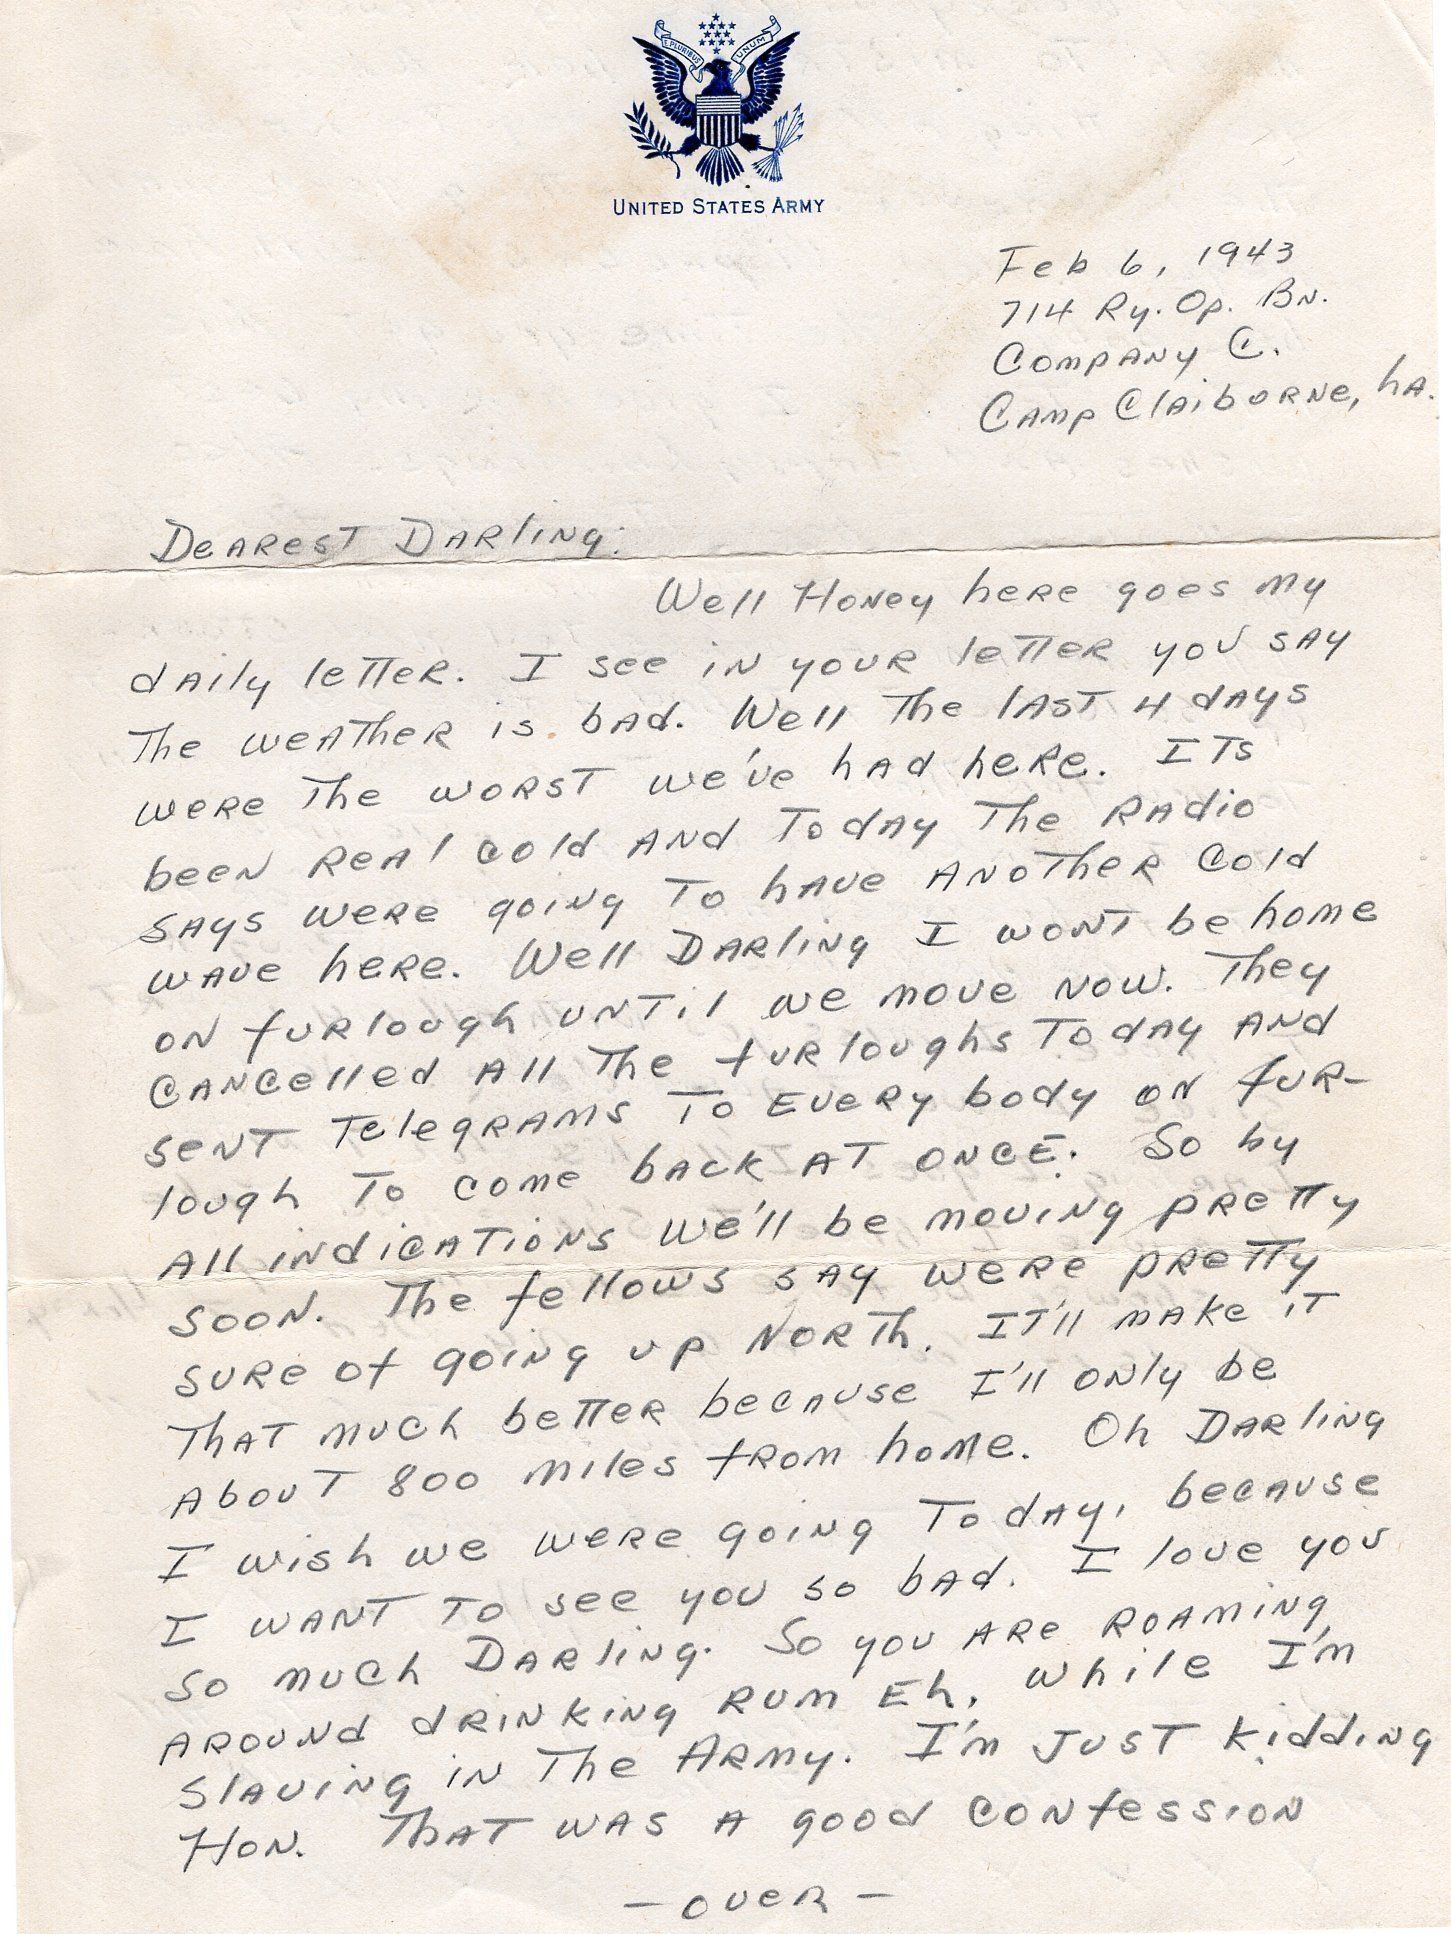 E PLURIBUS UNUM
UNITED STATES ARMY
Feb 6, 1943
714 Ry. Op. Bn.
Company C.
Camp Claiborne, La.
Dearest Darling:
Well Honey here goes my
daily letter. I see in your letter you say
the weather is bad. Well the last 4 days
were the worst we've had here. Its
been real cold and today the radio
says were going to have another cold
wave here. Well Darling I wont be home
on furlough until we move now. They
cancelled all the furloughs today and
sent telegrams to every body on fur-
lough to come back at once. So by
all indications we'll be moving pretty
soon. The fellows say were pretty
sure of going up North. It'll make it
that much better because I'll only be
about 800 miles from home. Oh Darling
I wish we were going today, because
I want to see you so bad. I love you
so much Darling. So you are roaming
around drinking rum Eh, while I'm
slaving in the Army. I'm just kidding
Hon. That was a good confession
- over -